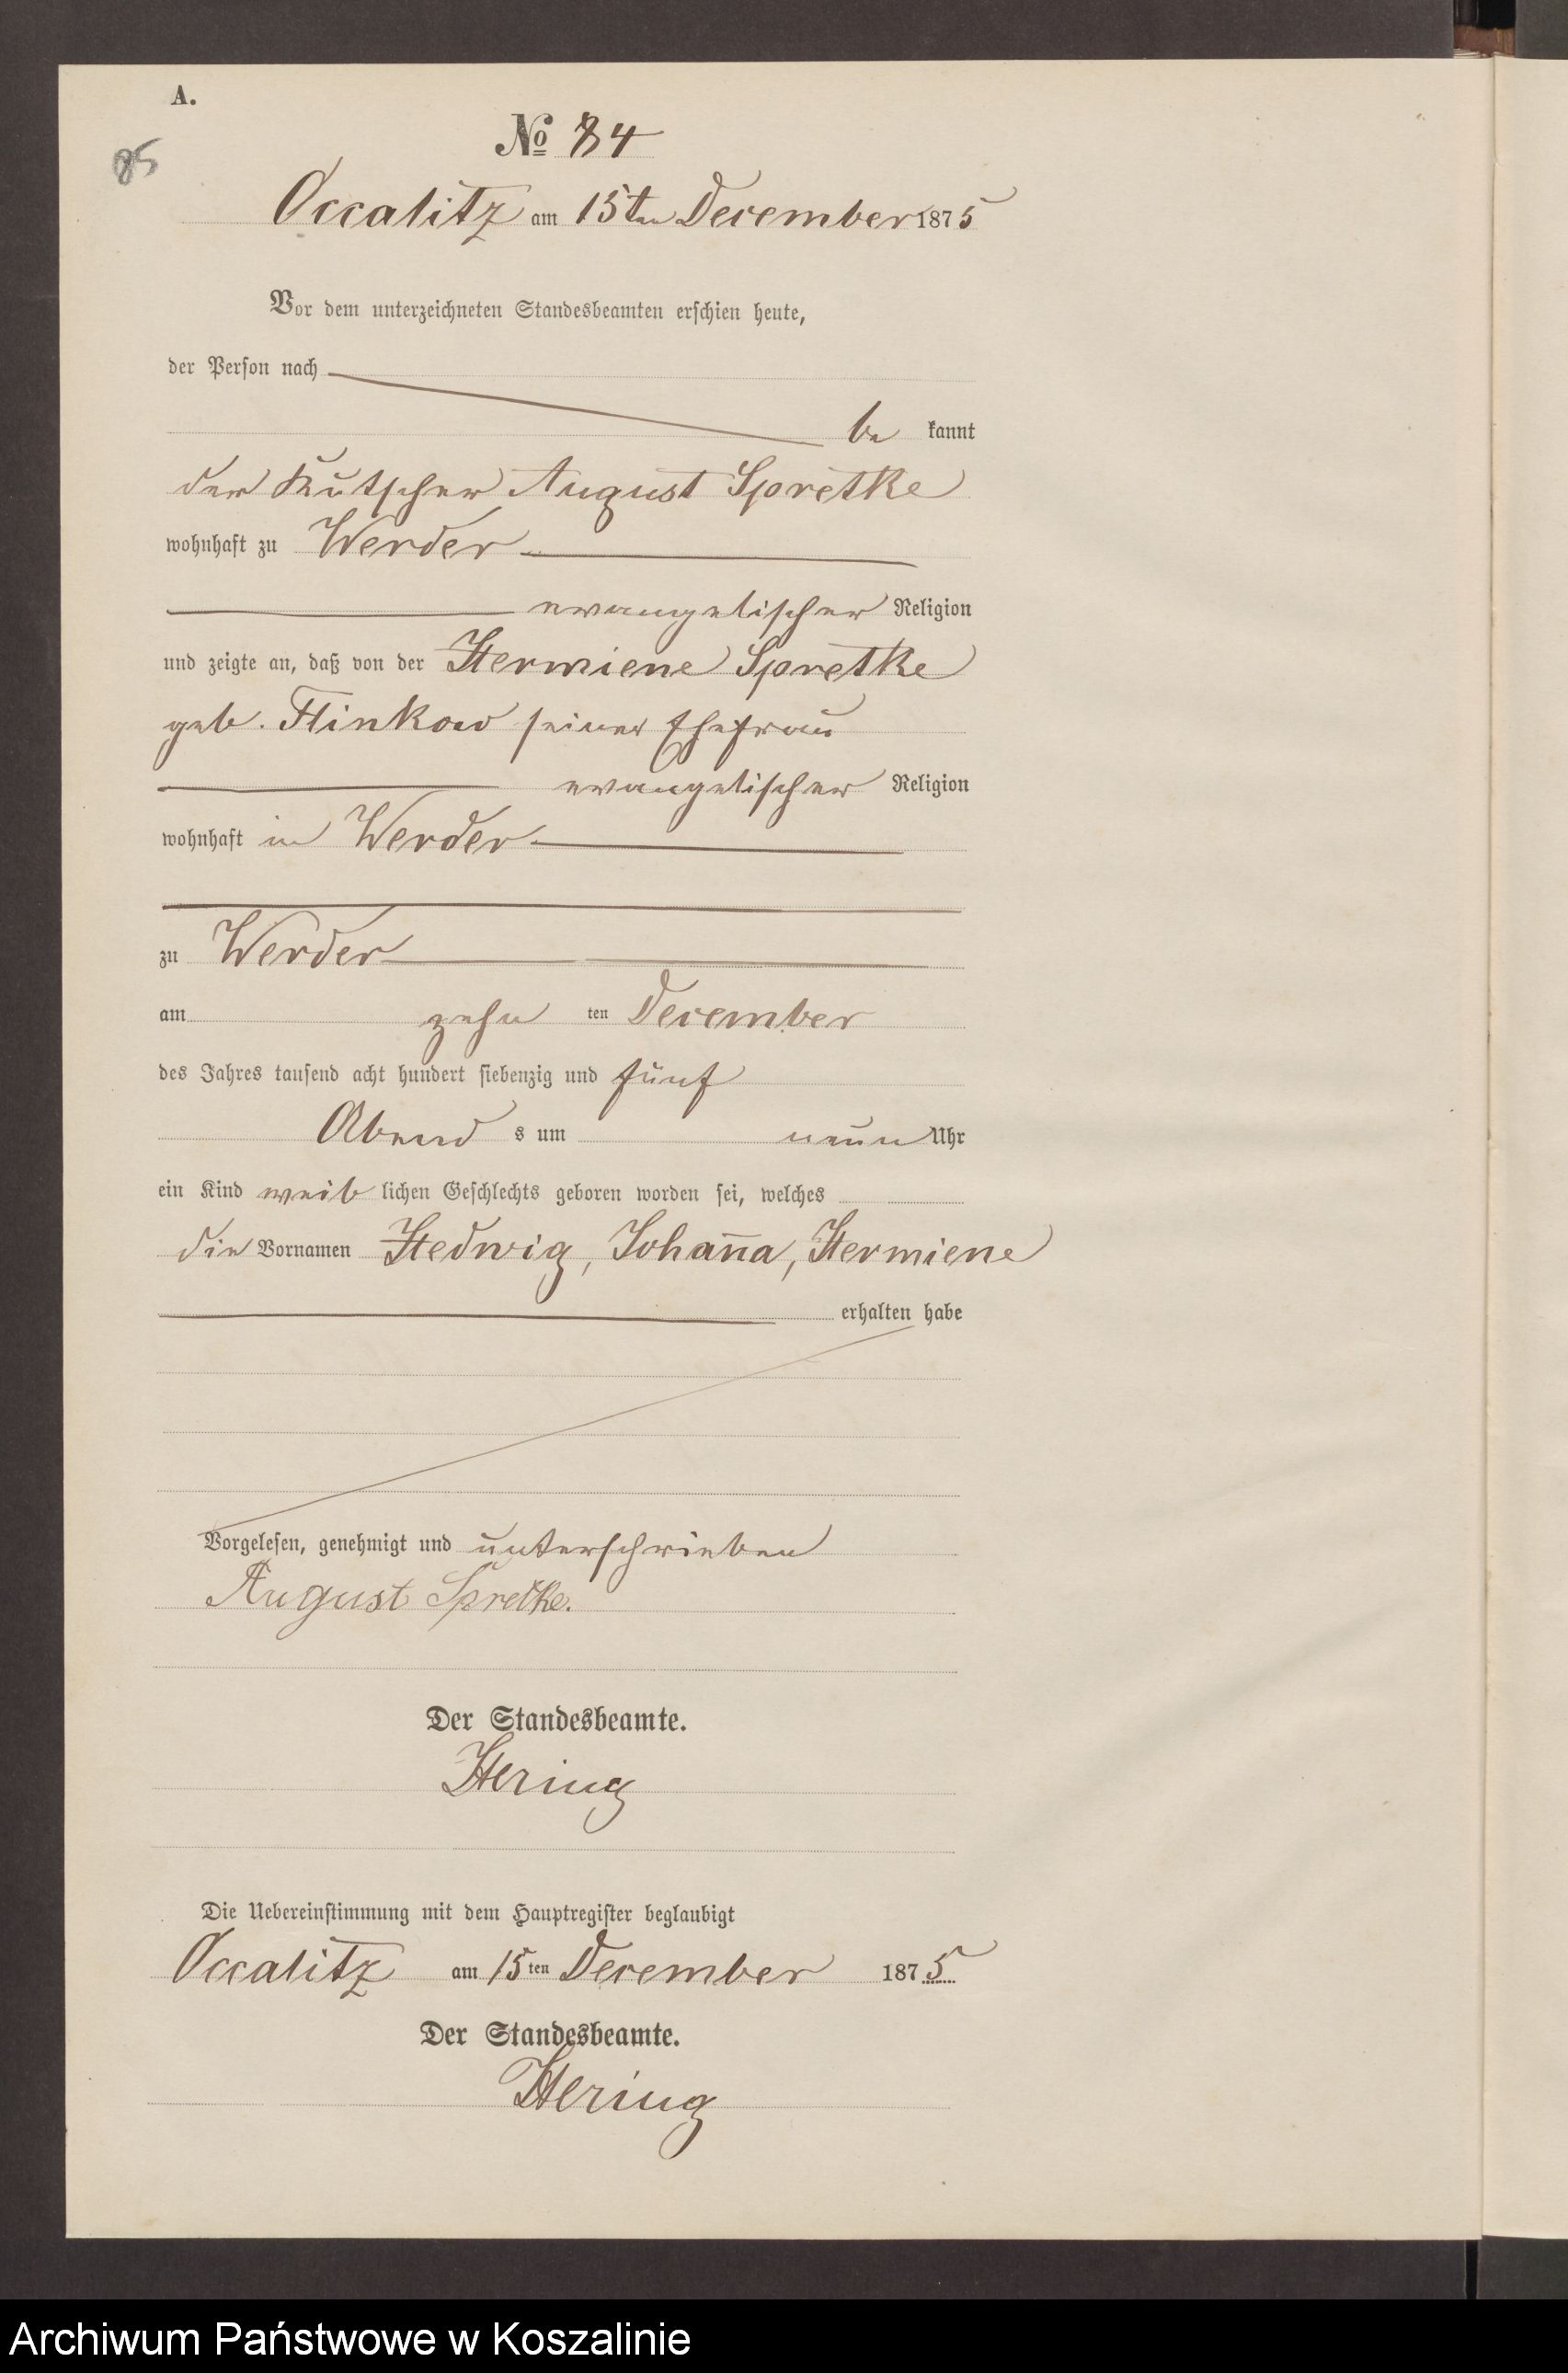 A.
№ 84
85
Occalitz am 15ten December 1875
Vor dem unterzeichneten Standesbeamten erschien heute,
der Person nach
be kannt
der Kutscher August Spretke
wohnhaft zu Werder
evangelischer Religion
und zeigte an, daß von der Hermiene Spretke
geb. Flinkow seiner Ehefrau
evangelischer Religion
wohnhaft in Werder
zu Werder
am zehn ten December
des Jahres tausend acht hundert siebenzig und fünf
Abend s um neun Uhr
ein Kind weib lichen Geschlechts geboren worden sei, welches
die Vornamen Hedwig, Johan̄a, Hermiene
erhalten habe
Vorgelesen, genehmigt und unterschrieben
August Spretke.
Der Standesbeamte.
Hering
Die Uebereinstimmung mit dem Hauptregister beglaubigt
Occalitz am 15ten December 1875
Der Standesbeamte.
Hering
Archiwum Państwowe w Koszalinie